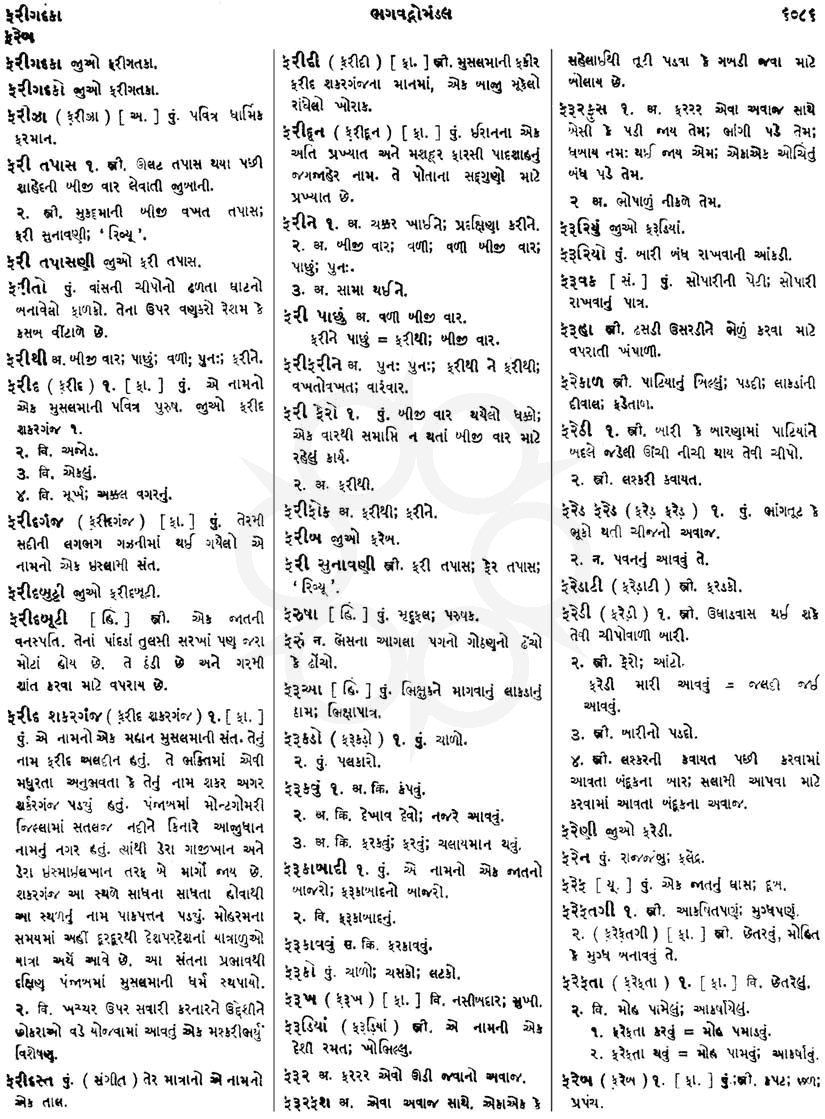 ફરીગદકા
ભગવદ્ગોમંડલ
૬૦૮૬
ફરેબ
ફરીગદકા જુઓ ફરીગતકા.
ફરીગદકો જુઓ ફરીગતકા.
ફરીઝા (ફ઼રીઝા) [ અ. ] પું. પવિત્ર ધાર્મિક
ફરમાન.
ફરી તપાસ ૧. સ્ત્રી. ઊલટ તપાસ થયા પછી
શાહેદની બીજી વાર લેવાતી જુબાની.
૨. સ્ત્રી. મુકદ્દમાની બીજી વખત તપાસ;
ફરી સુનાવણી; ‘ રિવ્યૂ ’.
ફરી તપાસણી જુઓ ફરી તપાસ.
ફરીતો પું. વાંસની ચીપોનો ઢળતા ઘાટનો
બનાવેલો ફાળકો. તેના ઉપર વણકરો રેશમ કે
કસબ વીંટાળે છે.
ફરીથી અ. બીજી વાર; પાછું; વળી; પુનઃ; ફરીને.
ફરીદ (ફ઼રીદ) ૧. [ ફા. ] પું. એ નામનો
એક મુસલમાની પવિત્ર પુરુષ. જુઓ ફરીદ
શકરગંજ ૧.
૨. વિ. અજોડ.
૩. વિ. એકલું.
૪. વિ. મૂર્ખ; અક્કલ વગરનું.
ફરીદગંજ (ફ઼રીદગંજ) [ ફા. ] પું. તેરમી
સદીની લગભગ ગઝનીમાં થઈ ગયેલો એ
નામનો એક ઇસ્લામી સંત.
ફરીદબુટ્ટી જુઓ ફરીદબૂટી.
ફરીદબૂટી [ હિં. ] સ્ત્રી. એક જાતની
વનસ્પતિ. તેનાં પાંદડાં તુલસી સરખાં પણ જરા
મોટાં હોય છે. તે ઠંડી છે અને ગરમી
શાંત કરવા માટે વપરાય છે.
ફરીદ શકરગંજ (ફ઼રીદ શકરગંજ) ૧. [ ફા. ]
પું. એ નામનો એક મહાન મુસલમાની સંત. તેનું
નામ ફરીદ અલદીન હતું. તે ભક્તિમાં એવી
મધુરતા અનુભવતા કે તેનું નામ શકર અગર
શર્કરગંજ પડ્યું હતું. પંજાબમાં મોન્ટગોમરી
જિલ્લામાં સતલજ નદીને કિનારે આજુધાન
નામનું નગર હતું. ત્યાંથી ડેરા ગાજીખાન અને
ડેરા ઇસ્માઇલખાન તરફ બે માર્ગો જાય છે.
શકરગંજ આ સ્થળે સાધના સાધતા હોવાથી
આ સ્થળનું નામ પાકપત્તન પડ્યું. મોહરમના
સમયમાં અહીં દૂરદૂરથી દેશપરદેશનાં યાત્રાળુઓ
યાત્રા અર્થે આવે છે. આ સંતના પ્રભાવથી
દક્ષિણ પંજાબમાં મુસલમાની ધર્મ સ્થપાયો.
૨. વિ. ખચ્ચર ઉપર સવારી કરનારને ઉદ્દેશીને
છોકરાઓ વડે યોજવામાં આવતું એક મશ્કરીભર્યું
વિશેષણ.
ફરીદસ્ત પું. (સંગીત) તેર માત્રાનો એ નામનો
એક તાલ.
ફરીદી (ફ઼રીદી) [ ફા. ] સ્ત્રી. મુસલમાની ફકીર
ફરીદ શકરગંજના માનમાં, એક બાજુ મૂકેલો
રાંધેલો ખોરાક.
ફરીદૂન (ફ઼રીદૂન) [ ફા. ] પું. ઇરાનના એક
અતિ પ્રખ્યાત અને મશહૂર ફારસી પાદશાહનું
જગજાહેર નામ. તે પોતાના સદ્ગુણો માટે
પ્રખ્યાત છે.
ફરીને ૧. અ. ચક્કર ખાઈને; પ્રદક્ષિણા કરીને.
૨. અ. બીજી વાર; વળી; વળી બીજી વાર;
પાછું; પુનઃ.
૩. અ. સામા થઈને.
ફરી પાછું અ. વળી બીજી વાર.
ફરીને પાછું = ફરીથી; બીજી વાર.
ફરીફરીને અ. પુનઃ પુનઃ; ફરીથી ને ફરીથી;
વખતોવખત; વારંવાર.
ફરી ફેરો ૧. પું. બીજી વાર થયેલો ધક્કો;
એક વારથી સમાપ્તિ ન થતાં બીજી વાર માટે
રહેલું કાર્ય.
૨. અ. ફરીથી.
ફરીફોક અ. ફરીથી; ફરીને.
ફરીબ જુઓ ફરેબ.
ફરી સુનાવણી સ્ત્રી. ફરી તપાસ; ફેર તપાસ;
‘ રિવ્યૂ ’.
ફરુષા [ હિં. ] પું. મૃદુફલ; પરુષક.
ફરું ન. ભેંસના આગલા પગનો ગોઠણનો ઢેંચો
કે ઢીંચો.
ફરૂઆ [ હિં. ] પું. ભિક્ષુકને માગવાનું લાકડાનું
ઠામ; ભિક્ષાપાત્ર.
ફરૂકડો (ફરૂકડ઼ો) ૧. પું. ચાળો.
૨. પું. પલકારો.
ફરૂકવું ૧. અ. ક્રિ. કંપવું.
૨. અ. ક્રિ. દેખાવ દેવો; નજરે આવવું.
૩. અ. ક્રિ. ફરકવું; ફરવું; ચલાયમાન થવું.
ફરૂકાબાદી ૧. પું. એ નામનો એક જાતનો
બાજરો; ફરૂકાબાદનો બાજરો.
૨. વિ. ફરૂકાબાદનું.
ફરૂકાવવું સ. ક્રિ. ફરકાવવું.
ફરૂકો પું. ચાળો; ચસકો; લટકો.
ફરૂખ (ફ઼રૂખ઼) [ ફા. ] વિ. નસીબદાર; સુખી.
ફરૂડિયાં (ફરૂડ઼િયાં) સ્ત્રી. એ નામની એક
દેશી રમત; ખોબિલ્લુ.
ફરૂર અ. ફરરર એવો ઊડી જવાનો અવાજ.
ફરૂરફશ અ. એવા અવાજ સાથે. એકાએક કે
સહેલાઈથી તૂટી પડવા કે ગબડી જવા માટે
બોલાય છે.
ફરૂરફુસ ૧. અ. ફરરર એવા અવાજ સાથે
બેસી કે પડી જાય તેમ; ભાંગી પડે તેમ;
ધબાય નમઃ થઈ જાય એમ; એકાએક ઓચિંતું
બંધ પડે તેમ.
૨ અ. ભોપાળું નીકળે તેમ.
ફરૂરિયું જુઓ ફરૂડિયાં.
ફરૂરિયો પું. બારી બંધ રાખવાની આંકડી.
ફરૂવક [ સં. ] પું. સોપારીની પેટી; સોપારી
રાખવાનું પાત્ર.
ફરૂહા સ્ત્રી. ઢસડી ઉસરડીને ભેળું કરવા માટે
વપરાતી ખંપાળી.
ફરેકાળ સ્ત્રી. પાટિયાનું બિલ્લું; પડદી; લાકડાંની
દીવાલ; કડેતાળ.
ફરેડી ૧. સ્ત્રી. બારી કે બારણામાં પાટિયાંને
બદલે જડેલી ઊંચી નીચી થાય તેવી ચીપો.
૨. સ્ત્રી. લશ્કરી કવાયત.
ફરેડ ફરેડ (ફરેડ઼ ફરેડ઼) ૧. પું. ભાંગતૂટ કે
ભૂકો થતી ચીજનો અવાજ.
૨. ન. પવનનું આવવું તે.
ફરેડાટી (ફરેડ઼ાટી) સ્ત્રી. ફરડકો.
ફરેડી (ફરેડ઼ી) ૧. સ્ત્રી. ઉઘાડવાસ થઈ શકે
તેવી ચીપોવાળી બારી.
૨. સ્ત્રી. ફેરો; આંટો.
ફરેડી મારી આવવું = જલદી જઈ
આવવું.
૩. સ્ત્રી. બારીનો પડદો.
૪. સ્ત્રી. લશ્કરની કવાયત પછી કરવામાં
આવતા બંદૂકના બાર; સલામી આપવા માટે
કરવામાં આવતા બંદૂકના અવાજ.
ફરેણી જુઓ ફરેડી.
ફરેન પું. રાજજંબુ; ફલેંદ્ર.
ફરેફ [ યૂ. ] પું. એક જાતનું ઘાસ; દૂબ.
ફરેફતગી ૧. સ્ત્રી. આકર્ષિતપણું; મુગ્ધપણું.
૨. (ફ઼રેફ઼તગી) [ ફા. ] સ્ત્રી. છેતરવું, મોહિત
કે મુગ્ધ બનાવવું તે.
ફરેફતા (ફ઼રેફ઼તા) ૧. [ ફા. ] વિ. છેતરેલું.
૨. વિ. મોહ પામેલું; આકર્ષાયેલું.
૧. ફરેફતા કરવું = મોહ પમાડવું.
૨. ફરેફતા થવું = મોહ પામવું; આકર્ષાવું.
ફરેબ (ફ઼રેબ) ૧. [ ફા. ] પું.;સ્ત્રી. કપટ; છળ;
પ્રપંચ.